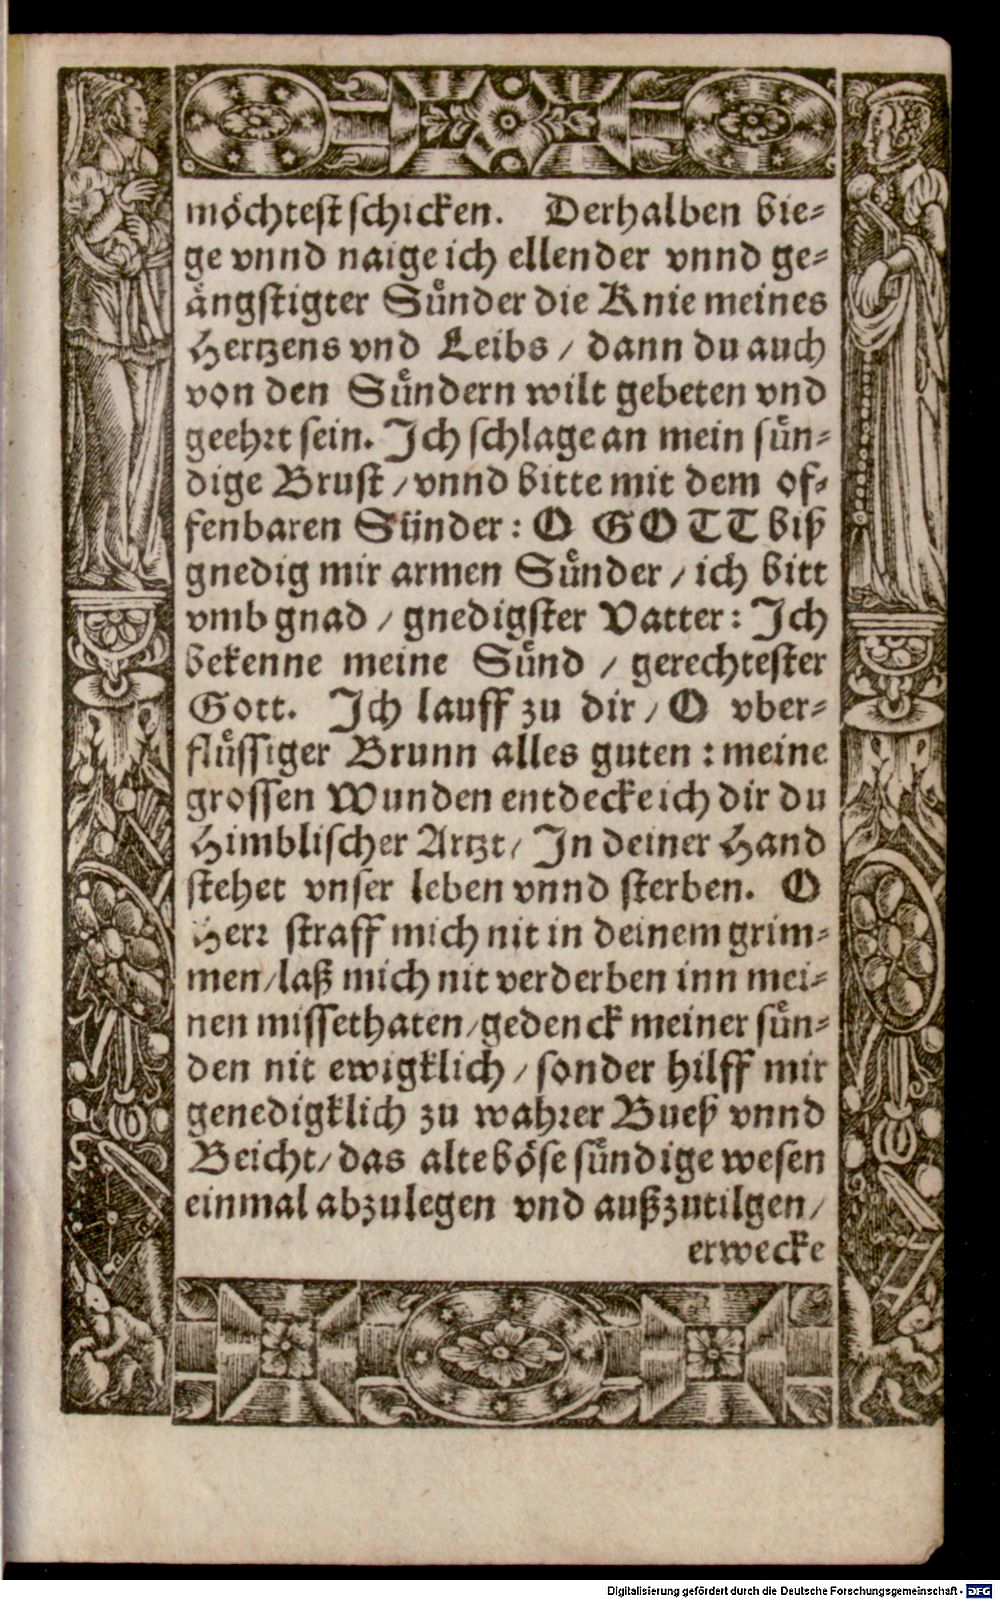 möchtest schicken. Derhalben bie-
ge vnnd naige ich ellender vnnd ge-
ängstigter Sünder die Knie meines
Hertzens vnd Leibs / dann du auch
von den Sündern wilt gebeten vnd
geehrt sein. Ich schlage an mein sün-
dige Brust / vnnd bitte mit dem of-
fenbaren Sünder: O GOTT biß
gnedig mir armen Sünder / ich bitt
vmb gnad / gnedigster Vatter: Ich
bekenne meine Sünd / gerechtester
Gott. Ich lauff zu dir / O vber-
flüssiger Brunn alles guten: meine
grossen Wunden entdecke ich dir du
Himblischer Artzt / In deiner Hand
stehet vnser leben vnnd sterben. O
Herr straff mich nit in deinem grim-
men / laß mich nit verderben inn mei-
nen missethaten / gedenck meiner sün-
den nit ewigklich / sonder hilff mir
genedigklich zu wahrer Bueß vnnd
Beicht / das alte böse sündige wesen
einmal abzulegen vnd außzutilgen /
erwecke
Digitalisierung gefördert durch die Deutsche Forschungsgemeinschaft - DFG